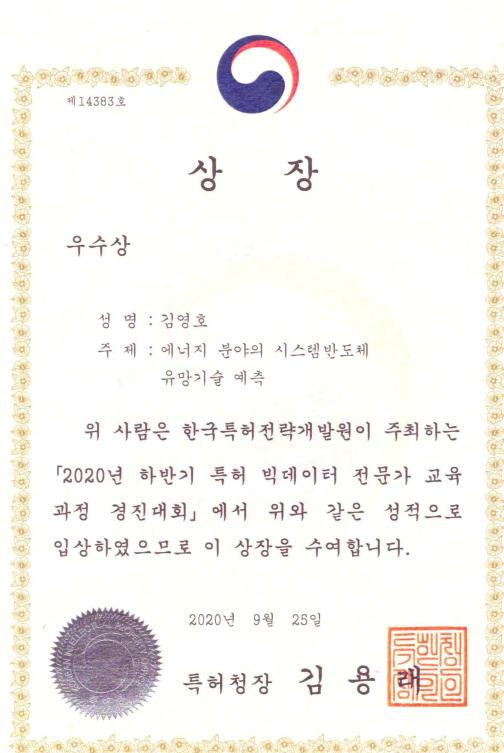 제14383호
상 장
우수상
성 명 : 김영호
주 제 : 에너지 분야의 시스템반도체
유망기술 예측
위 사람은 한국특허전략개발원이 주최하는
「2020년 하반기 특허 빅데이터 전문가 교육
과정 경진대회」에서 위와 같은 성적으로
입상하였으므로 이 상장을 수여합니다.
2020년 9월 25일
특허청장 김 용 래